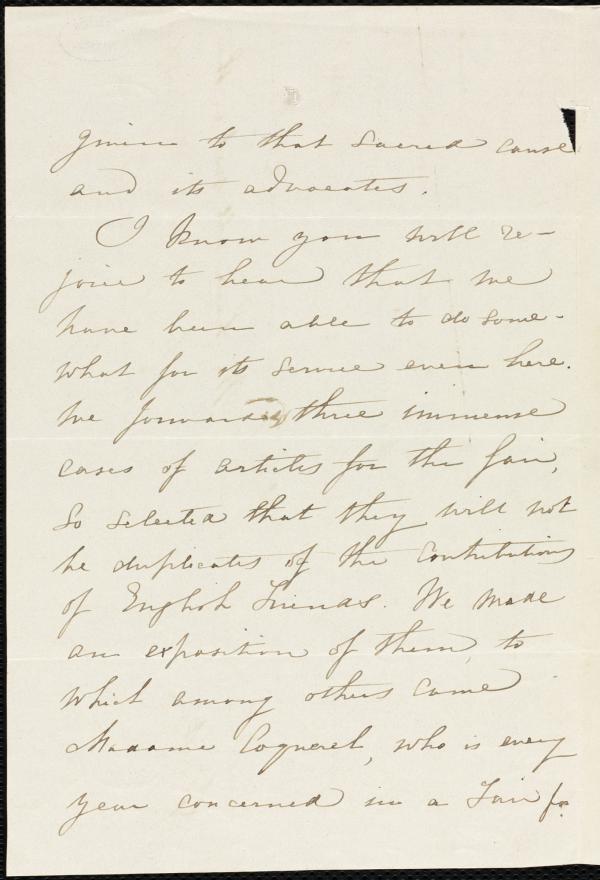 given to that sacred cause
and its advocates.
I know you will re-
joice to hear that we
have been able to do some-
what for its service even here.
We forward three immense
cases of articles for the fair,
so selected that they will not
be duplicates of the contributions
of English Friends. We made
an exposition of them, to
which among others came
Madame Coquerel, who is every
year concerned in a Fair for